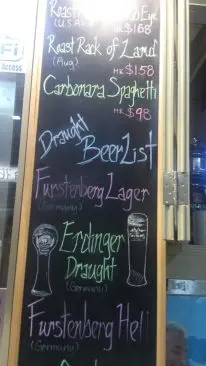 Roast
(U.S.A)
HK$168
Roast Rack of Lamb
(Aug)
HK$158
Carbonara Spaghetti
HK$98
Draught
Beer List
Furstenberg Lager
(Germany)
Erdinger
Draught
(Germany)
Furstenberg Hell
(Germany)
Fi
Access